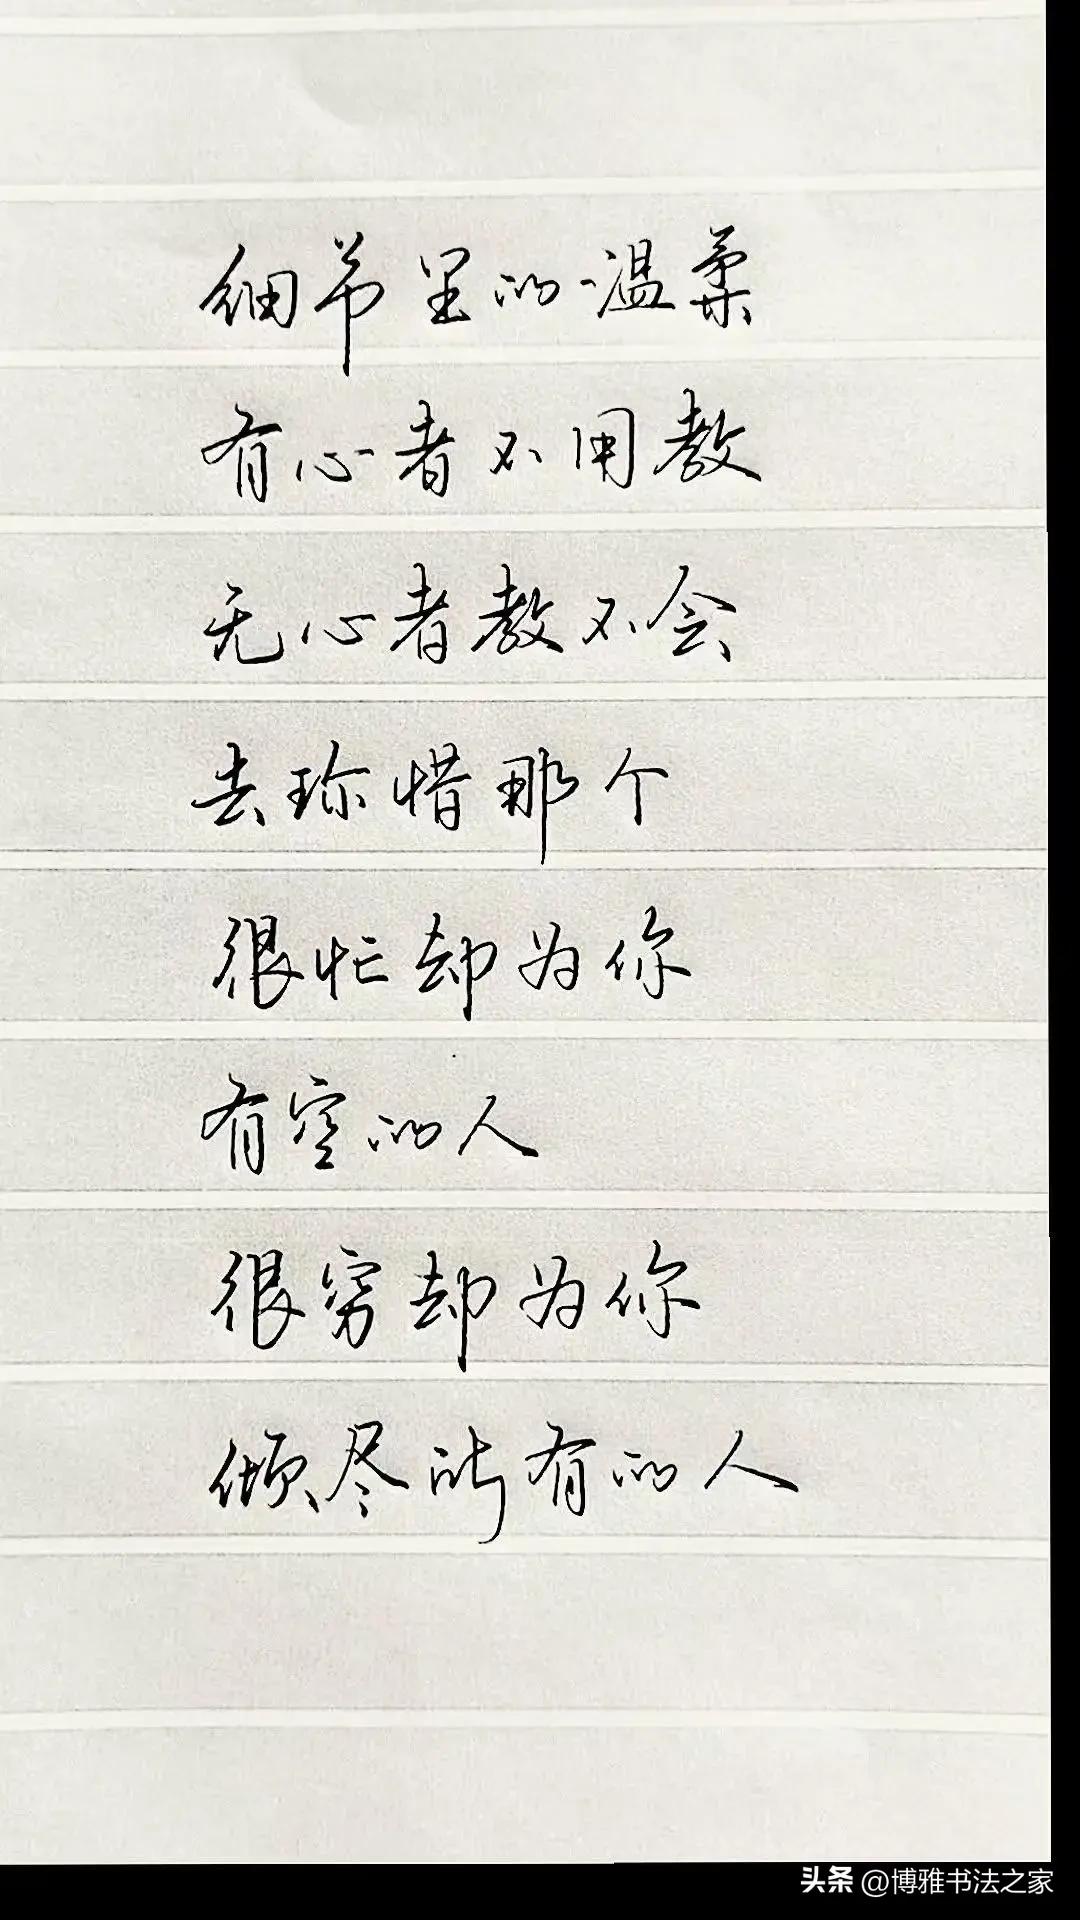 细节里的温柔
有心者不用教
无心者教不会
去珍惜那个
很忙却为你
有空的人
很穷却为你
倾尽所有的人
头条 @博雅书法之家